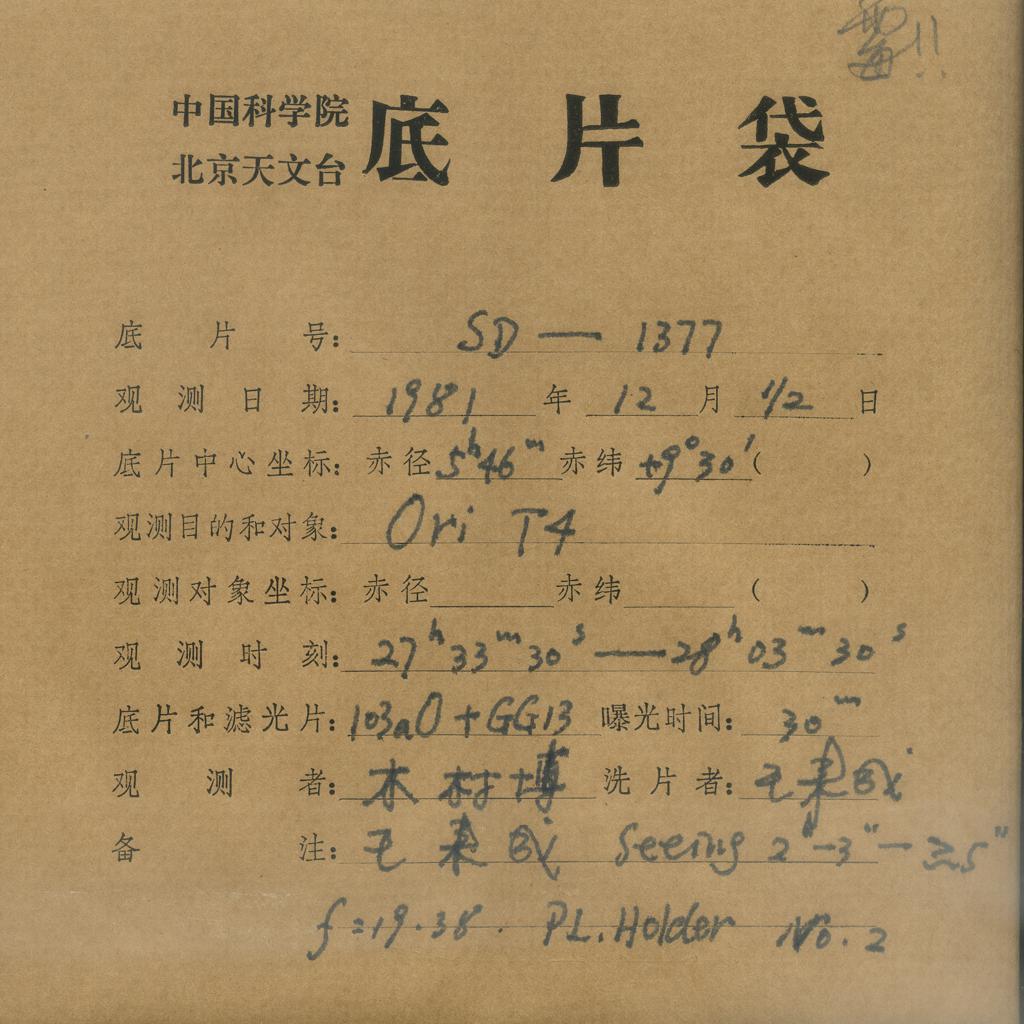 中国科学院
北京天文台
底片袋
底片号: SD — 1377
观测日期: 1981 年 12 月 1/2 日
底片中心坐标: 赤径 5ʰ46ᵐ 赤纬 +9°30′ ( )
观测目的和对象: Ori T4
观测对象坐标: 赤径 赤纬 ( )
观测时刻: 27ʰ33ᵐ30ˢ — 28ʰ03ᵐ30ˢ
底片和滤光片: 103aO + GG13 曝光时间: 30ᵐ
观测者: 木村博 洗片者: 王
备注: 王 Seeing 2″–3″ — ≥5″
f = 19.38. PL. Holder No. 2